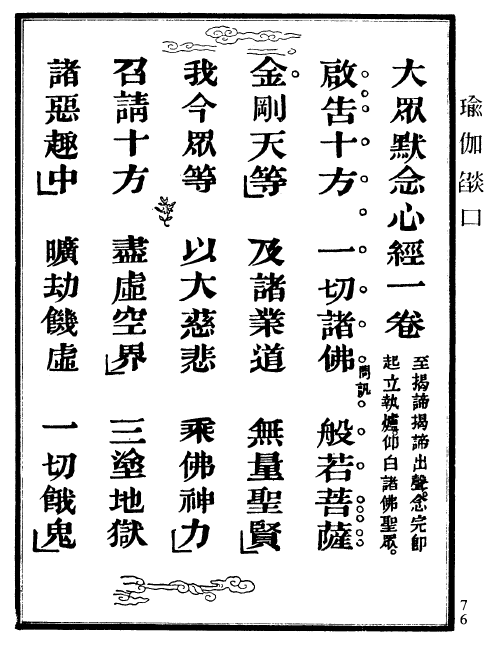 瑜伽燄口
大眾默念心經一卷
至揭諦揭諦出聲。念完即
起立執爐。仰白諸佛聖眾。
啟告十方 一切諸佛 問訊。 般若菩薩
金剛天等 及諸業道 無量聖賢
我今眾等 以大慈悲 乘佛神力
召請十方 盡虛空界 三塗地獄
諸惡趣中 曠劫饑虛 一切餓鬼
76